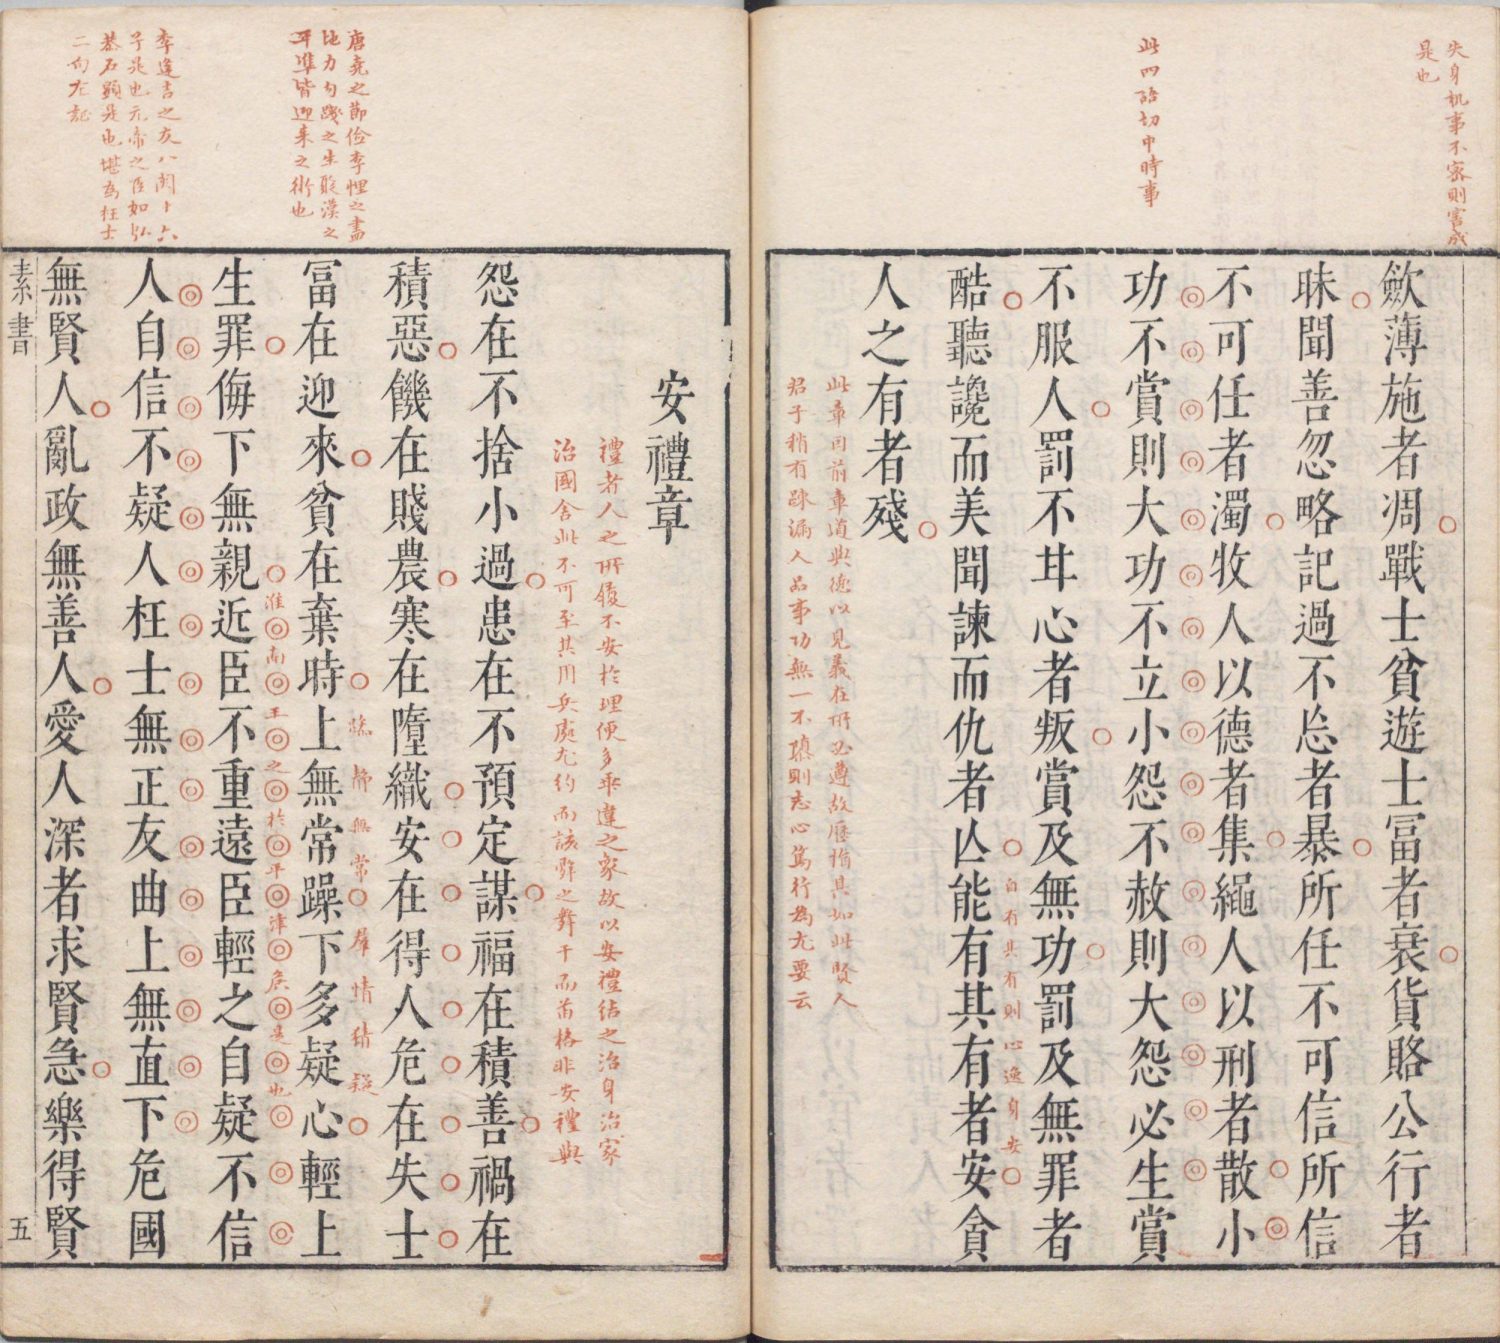 失身机事不密則害成
是也
此四語切中時事
歛薄施者凋戰士貧遊士冨者衰貨賂公行者
昧聞善忽略記過不忘者暴所任不可信所信
不可任者濁牧人以德者集繩人以刑者散小
功不賞則大功不立小怨不赦則大怨必生賞
不服人罰不甘心者叛賞及無功罰及無罪者
酷聽讒而美聞諫而仇者亾能有其有者安貪
自有其有則心逸身安
人之有者殘
此章因前章道與德以見義在所必遵故歷指其如此賢人
君子稍有踈漏人品事功無一不隳則志心篤行為尤要云
唐堯之節儉李悝之盡
地力勾踐之生聚漢之
平準皆迎来之術也
李逢吉之友八関十六
子是也元帝之臣如弘
恭石顕是也堪為枉士
二句左証
安禮章
禮者人之所履不安於理便多乖違之家故以安禮結之治身治家
治國舍此不可至其用兵處尤約而該辭之舞干而苗格非安禮與
怨在不捨小過患在不預定謀福在積善禍在
積惡饑在賤農寒在墮織安在得人危在失士
冨在迎來貧在棄時上無常躁下多疑心輕上
靜無常羣情猜疑
生罪侮下無親近臣不重遠臣輕之自疑不信
淮南王之於平津矦是也
人自信不疑人枉士無正友曲上無直下危國
無賢人亂政無善人愛人深者求賢急樂得賢
素書
五